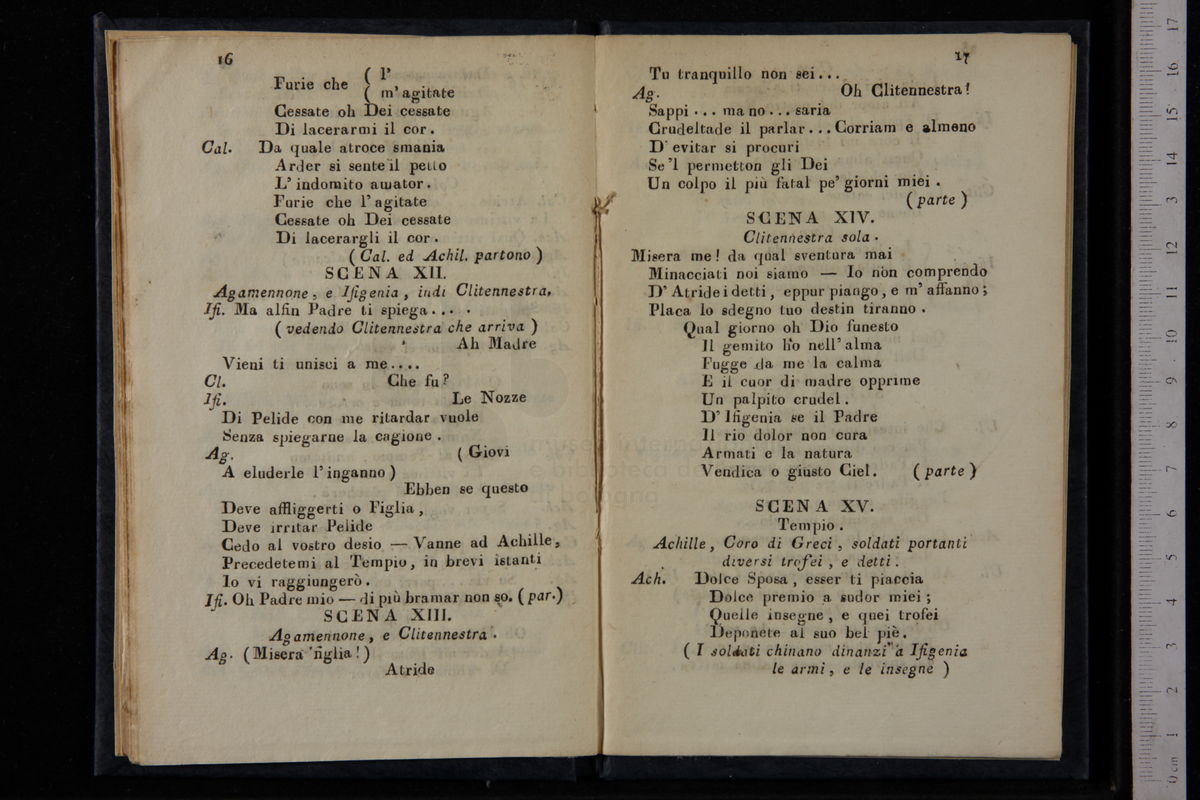 16
Furie che ( l'
( m' agitate
Cessate oh Dei cessate
Di lacerarmi il cor.
Cal. Da quale atroce smania
Arder si sente il petto
L' indomito amator.
Furie che l' agitate
Cessate oh Dei cessate
Di lacerargli il cor.
( Cal. ed Achil. partono )
SCENA XII.
Agamennone, e Ifigenia, indi Clitennestra.
Ifi. Ma alfin Padre ti spiega....
( vedendo Clitennestra che arriva )
Ah Madre
Vieni ti unisci a me....
Cl. Che fu?
Ifi. Le Nozze
Di Pelide con me ritardar vuole
Senza spiegarne la cagione.
Ag. ( Giovi
A eluderle l' inganno )
Ebben se questo
Deve affliggerti o Figlia,
Deve irritar Pelide
Cedo al vostro desio — Vanne ad Achille,
Precedetemi al Tempio, in brevi istanti
Io vi raggiungerò.
Ifi. Oh Padre mio — di più bramar non so. ( par. )
SCENA XIII.
Agamennone, e Clitennestra.
Ag. ( Misera figlia! )
Atride
17
Tu tranquillo non sei...
Ag. Oh Clitennestra!
Sappi... ma no... saria
Crudeltade il parlar... Corriam e almeno
D' evitar si procuri
Se 'l permetton gli Dei
Un colpo il più fatal pe' giorni miei.
( parte )
SCENA XIV.
Clitennestra sola.
Misera me! da qual sventura mai
Minacciati noi siamo — Io non comprendo
D' Atride i detti, eppur piango, e m' affanno;
Placa lo sdegno tuo destin tiranno.
Qual giorno oh Dio funesto
Il gemito ho nell' alma
Fugge da me la calma
E il cuor di madre opprime
Un palpito crudel.
D' Ifigenia se il Padre
Il rio dolor non cura
Armati e la natura
Vendica o giusto Ciel. ( parte )
SCENA XV.
Tempio.
Achille, Coro di Greci, soldati portanti
diversi trofei, e detti.
Ach. Dolce Sposa, esser ti piaccia
Dolce premio a sudor miei;
Quelle insegne, e quei trofei
Deponete al suo bel piè.
( I soldati chinano dinanzi a Ifigenia
le armi, e le insegne )